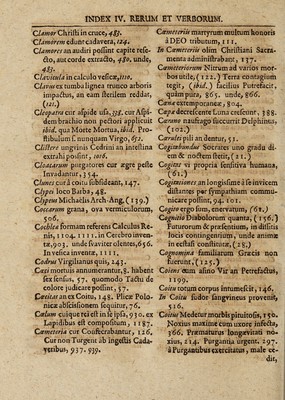 INDEX IV. RERUM ET VERBORUM.
Clamor Christi in cruce, 483.
Clamorem edunt cadavera, 124.
Clamores an audiri possint capite resecto, aut corde extracto, 480, unde, 483.
Clavicula in calculo vesicæ, 1110.
Clavus ex tumba lignea trunco arboris impactus, an eam sterilem reddat, (21.)
Cleopatra cur aspide usa, 358. cur Aspidem brachio non pectori applicuit ibid. qua Morte Mortua, ibid. Prostibulum & nunquam Virgo, 651.
Clistere ungrinis Condrini an intestina extrahi possint, 1016.
Cloacarum purgatores cur ægre peste Invadantur, 354.
Clunes cur à coitu subsideant, 147.
Clypei loco Barba, 48.
Clypeus Michaelis Arch-Ang, (139.)
Coccarum grana, ova vermiculorum, 506.
Cochleæ formam referens Calculus Renis, 1104. 1111. in Cerebro inventæ, 903. unde suaviter olentes, 656. In vesica inventæ, 1111.
Codrus Virgilianus quis, 243.
Cœci mortuis annumerantur, 8. habent sex sensus, 57. quomodo Tactu de colore judicare possint, 57.
Cœcitas an ex Coitu, 148. Plicæ Polonicæ abscissionem sequitur, 76.
Cœlum cuique rei est in se ipsa, 930. ex Lapidibus est compositum, 1187.
Cœmeteria cur Confecrabantur, 126. Cur non Turgent ab ingestis Cadaveribus, 937. 939.
Cœmeteriis martyrum multum honoris à DEO tributum, 111.
In Cœmeteriis olim Christiani Sacramenta administrabant, 137.
Cœmeteriorum Nitrum ad varios morbos utile, (122.) Terra contagium tegit, (ibid.) facilius Putrefacit, quàm pura, 865. unde, 866.
Cœnæ extemporaneæ, 804.
Cœpæ decrescente Luna crescunt, 388.
Cœrano naufrago succurrit Delphinus, (102.)
Cœrulei pili an dentur, 53.
Cogitabundus Socrates uno gradu diem & noctem stetit, (21.)
Cogitans vi propria sensitiva humana, (61.)
Cogitationes an longissimè à se invicem distantes per sympathiam communicare possint, 94. 101.
Cogito ergo sum, enervatum, (68.)
Cognitio Diabolorum quanta, (156.) Futurorum & præsentium, in dissitis locis contingentium, unde animæ in ecstasi constitutæ, (28.)
Cognomina familiarum Græcis non fuerunt, (125.)
Coiens cum asino Vir an Petrefactus, 1199.
Coitu totum corpus intumescit, 146.
In Coitu sudor sangvineus provenit, 516.
Coitus Medetur morbis pituitosis, 150. Noxius maximè cum uxore infecta, 366. Præmaturus longævitati noxius, 214. Purgantia urgent. 297. à Purgantibus exercitatus, malè cedit,